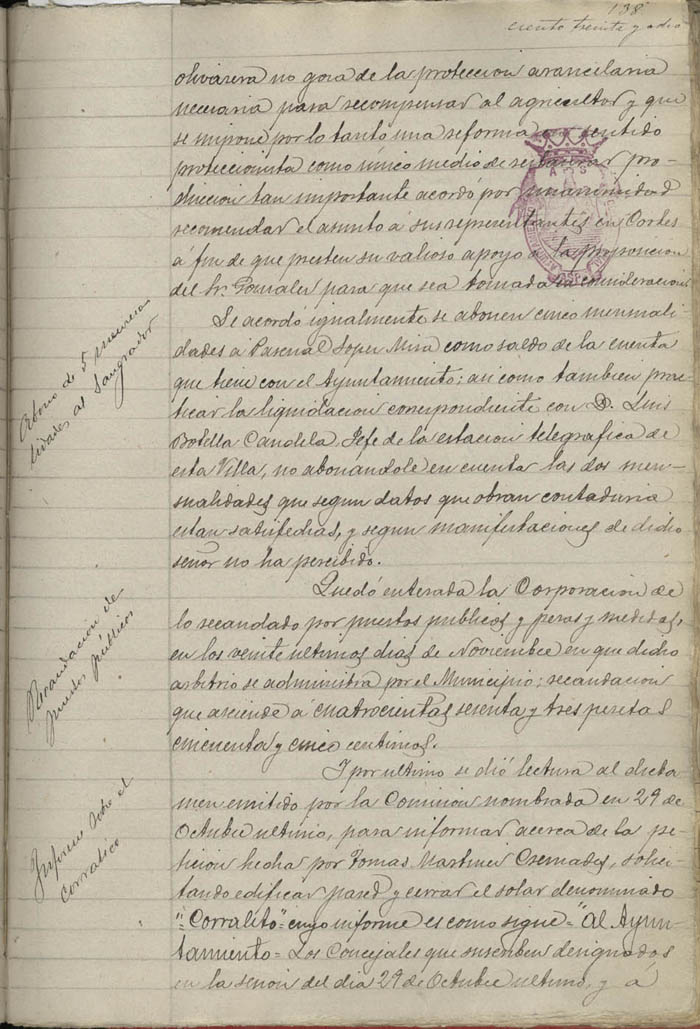 138
ciento treinta y ocho
olivarera no goza de la proteccion arancelaria
necesaria para recompensar al agricultor y que
se impone por lo tanto una reforma en sentido
proteccionista como único medio de restaurar pro-
duccion tan importante acordó por unanimidad
recomendar el asunto á sus representantes en Cortes
á fin de que presten su valioso apoyo á la proposicion
del Sr. Gonzalez para que sea tomada en consideracion
Abono de 5 mensua
lidades al Sangrador
Se acordó igualmente se abonen cinco mensuali
dades á Pascual Soper Mira como saldo de la cuenta
que tiene con el Ayuntamiento; asi como tambien prac
ticar la liquidacion correspondiente con D. Luis
Botella Candela, Jefe de la estacion telegrafica de
esta Villa, no abonandole en cuenta las dos men-
sualidades que segun datos que obran contaduria
estan satisfechas, y segun manifestaciones de dicho
señor no ha percibido.
Recaudacion de
puestos públicos
Quedó enterada la Corporacion de
lo recaudado por puestos publicos y pesas y medidas,
en los veinte ultimos dias de Noviembre en que dicho
arbitrio se administra por el Municipio; recaudacion
que asciende á cuatrocientas sesenta y tres pesetas
cincuenta y cinco centimos.
Informe sobre el
Corralico
Y por ultimo se dió lectura al dicta
men emitido por la Comision nombrada en 29 de
Octubre ultimo, para informar acerca de la pe-
ticion hecha por Tomas Martinez Cremades, solici-
tando edificar pared y cerrar el solar denominado
"Corralito" cuyo informe es como sigue = "Al Ayun-
tamiento = Los Concejales que suscriben designados
en la sesion del dia 29 de Octubre ultimo, y á